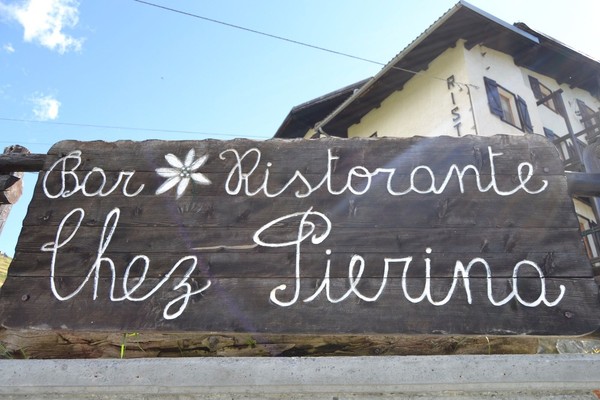 Bar Ristorante
Chez Pierina
RIST